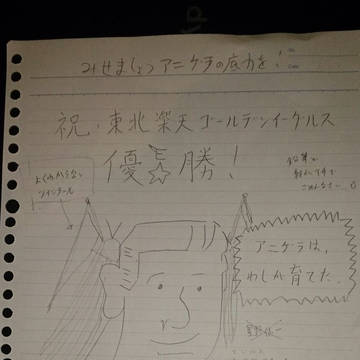 みせましょうアニケラの底力を!
祝・東北楽天ゴールデンイーグルス
優☆勝!
よくわからない
ツインテール
鉛筆で
ごめんなさい
アニケラは、
わしが育てた。